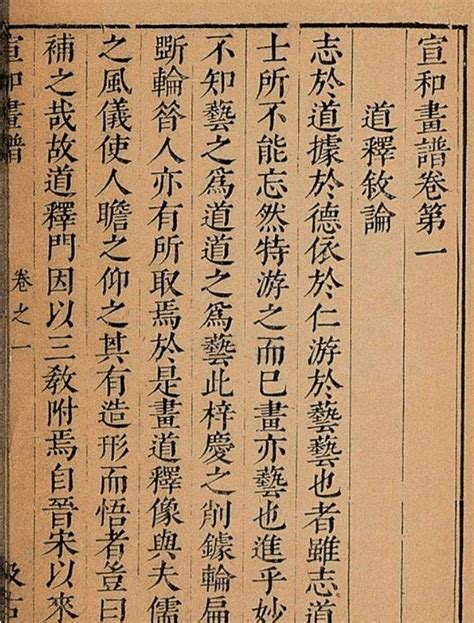 宣和畫譜卷第一
道釋敘論
志於道據於德依於仁游於藝藝也者雖志道
士所不能忘然特游之而已畫亦藝也進乎妙
不知藝之爲道道之爲藝此梓慶之削鐻輪扁
斵輪昝人亦有所取焉於是畫道釋像與夫儒
之風儀使人瞻之仰之其有造形而悟者豈曰
補之哉故道釋門因以三教附焉自晉宋以來
宣和畫譜 卷之一 汲古